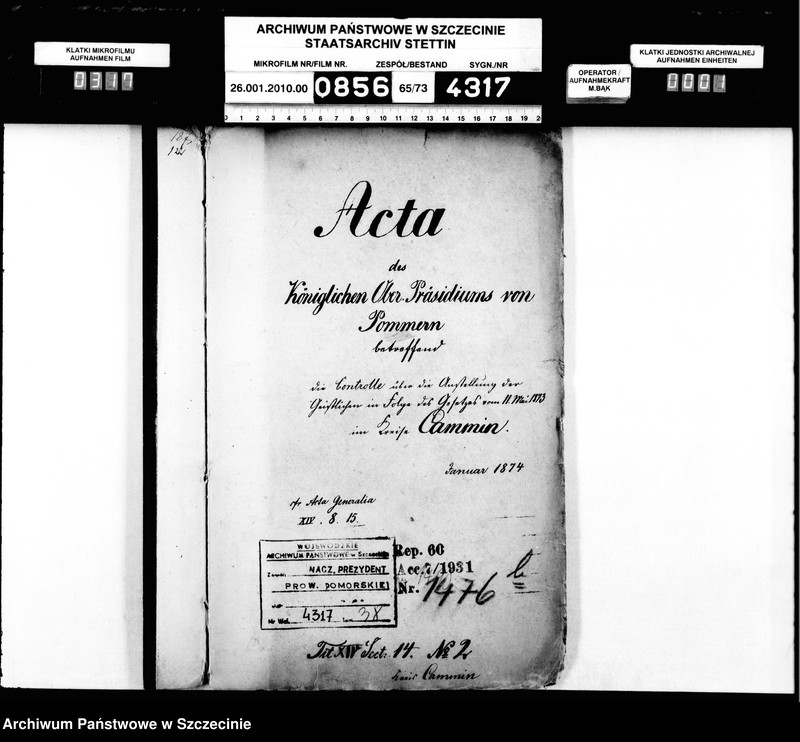 ARCHIWUM PAŃSTWOWE W SZCZECINIE
STAATSARCHIV STETTIN
MIKROFILM NR/FILM NR. ZESPÓŁ/BESTAND SYGN./NR
26.001.2010.00 0856 65/73 4317
KLATKI MIKROFILMU
AUFNAHMEN FILM
0317
OPERATOR /
AUFNAHMEKRAFT
M.BĄK
KLATKI JEDNOSTKI ARCHIWALNEJ
AUFNAHMEN EINHEITEN
0001
0 1 2 3 4 5 6 7 8 9 10 11 12 13 14 15 16 17 18 19 2
Acta
des
Königlichen Ober-Präsidiums von
Pommern
betreffend
die Controlle über die Anstellung der
Geistlichen in Folge des Gesetzes vom 11. Mai 1873
im Kreise Cammin.
Januar 1874
cfr Acta Generalia
XIV. 8. 15.
WOJEWÓDZKIE
ARCHIWUM PAŃSTWOWE w Szczecinie
Zespół: NACZ. PREZYDENT
PROW. POMORSKIEJ
Nr Wol. 4317
Rep. 60
Acc. 7/1931
Nr. 1476 b
Tit XIV Sect: 14. No 2
Kreis Cammin